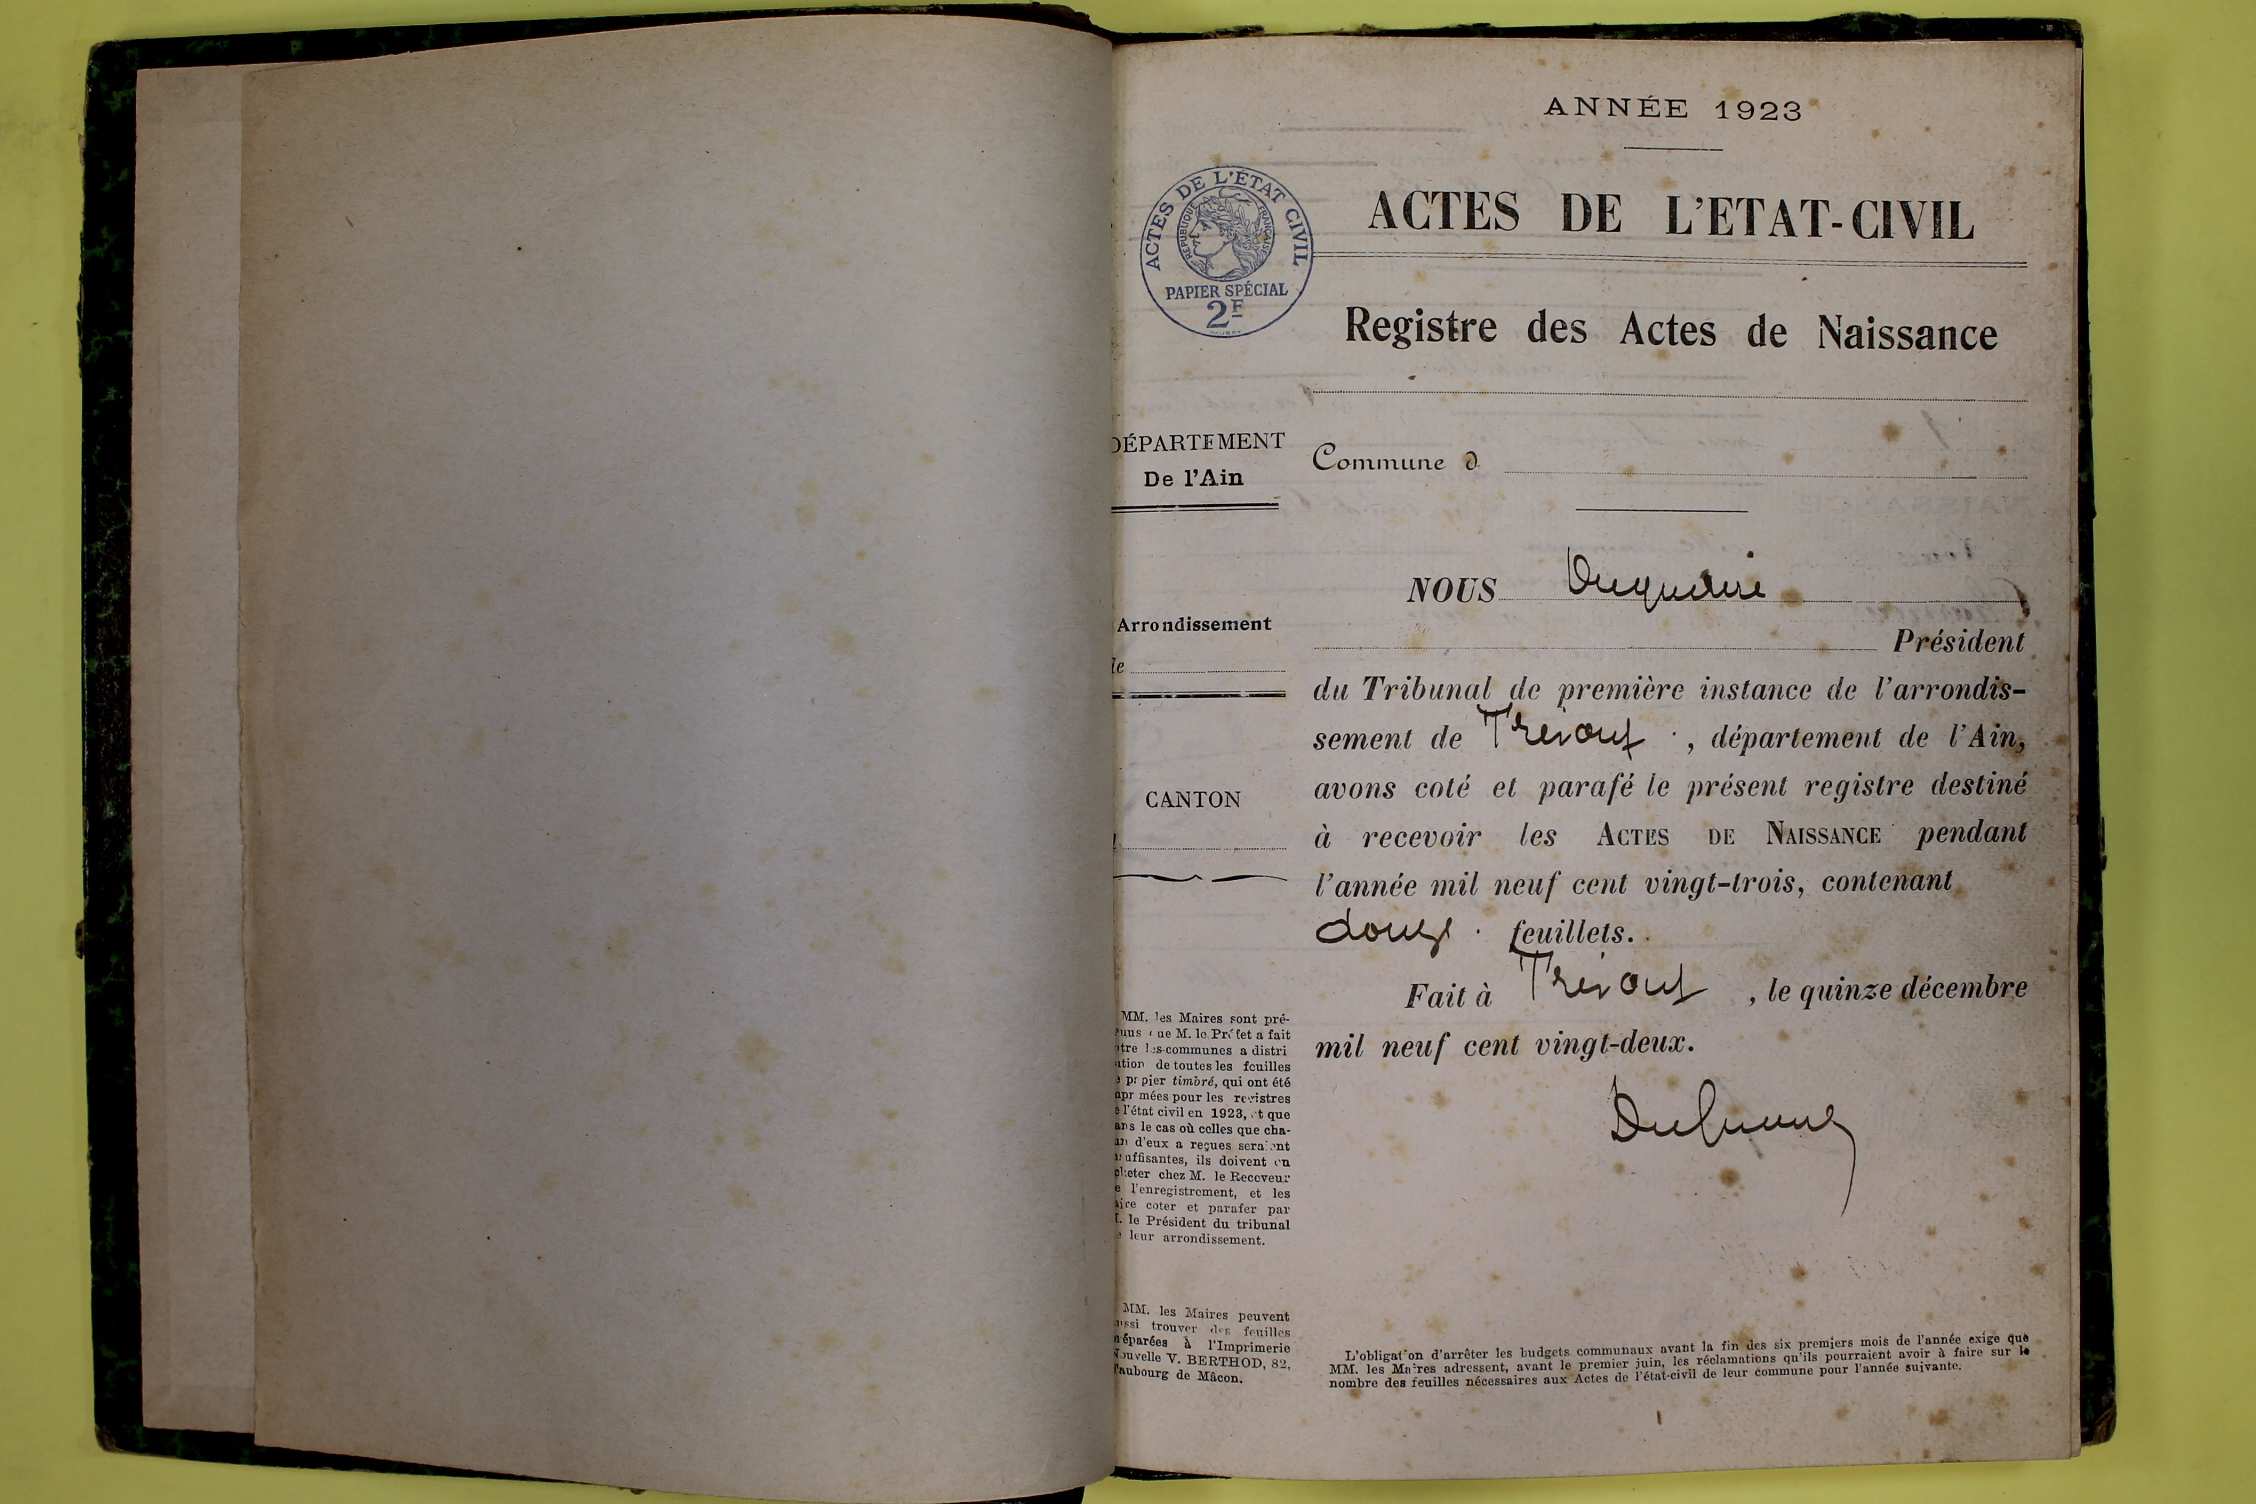 ANNÉE 1923
ACTES DE L'ÉTAT CIVIL
RÉPUBLIQUE FRANÇAISE
PAPIER SPÉCIAL
2F
ACTES DE L'ETAT-CIVIL
Registre des Actes de Naissance
DÉPARTEMENT
De l'Ain
Commune d
Arrondissement
de
CANTON
NOUS
Président
du Tribunal de première instance de l'arrondis-
sement de Trévoux, département de l'Ain,
avons coté et parafé le présent registre destiné
à recevoir les ACTES DE NAISSANCE pendant
l'année mil neuf cent vingt-trois, contenant
douze feuillets.
Fait à Trévoux, le quinze décembre
mil neuf cent vingt-deux.
MM. les Maires sont pré-
nus que M. le Préfet a fait
tre les communes a distri
ution de toutes les feuilles
e papier timbré, qui ont été
mpr mées pour les registres
e l'état civil en 1923, et que
ans le cas où celles que cha-
un d'eux a reçues seraient
suffisantes, ils doivent en
cheter chez M. le Receveur
e l'enregistrement, et les
aire coter et parafer par
M. le Président du tribunal
e leur arrondissement.
MM. les Maires peuvent
ussi trouver des feuilles
réparées à l'Imprimerie
Nouvelle V. BERTHOD, 82,
Faubourg de Mâcon.
L'obligation d'arrêter les budgets communaux avant la fin des six premiers mois de l'année exige que
MM. les Maires adressent, avant le premier juin, les réclamations qu'ils pourraient avoir à faire sur le
nombre des feuilles nécessaires aux Actes de l'état-civil de leur commune pour l'année suivante.